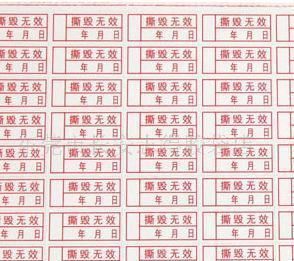 撕毁无效 撕毁无效 撕毁无效 撕毁无效
年 月 日 年 月 日 年 月 日 年 月 日
撕毁无效 撕毁无效 撕毁无效 撕毁无效
年 月 日 年 月 日 年 月 日 年 月 日
撕毁无效 撕毁无效 撕毁无效 撕毁无效
年 月 日 年 月 日 年 月 日 年 月 日
撕毁无效 撕毁无效 撕毁无效 撕毁无效
年 月 日 年 月 日 年 月 日 年 月 日
撕毁无效 撕毁无效 撕毁无效 撕毁无效
年 月 日 年 月 日 年 月 日 年 月 日
撕毁无效 撕毁无效 撕毁无效 撕毁无效
年 月 日 年 月 日 年 月 日 年 月 日
撕毁无效 撕毁无效 撕毁无效 撕毁无效
年 月 日 年 月 日 年 月 日 年 月 日
撕毁无效 撕毁无效 撕毁无效 撕毁无效